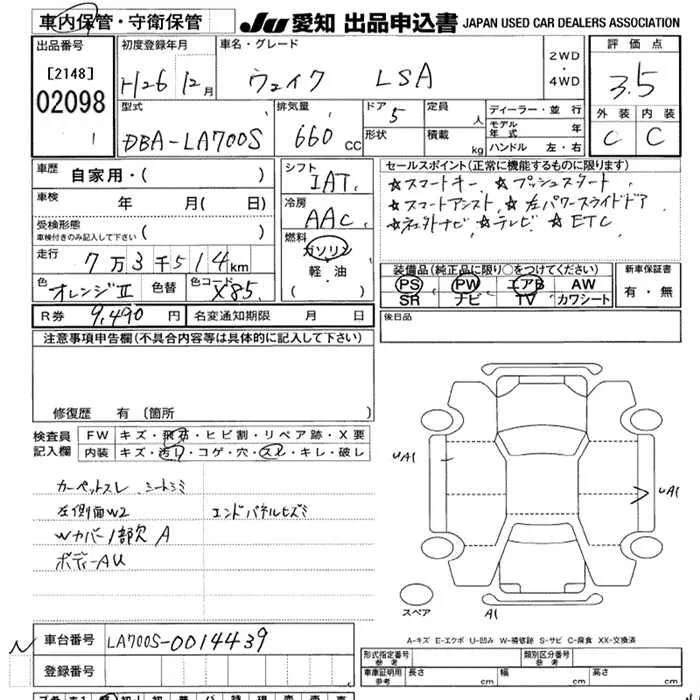 車内保管・守衛保管
JU 愛知 出品申込書 JAPAN USED CAR DEALERS ASSOCIATION
出品番号 初度登録年月 車名・グレード 2WD・4WD 評価点
[2148] H26 12月 ウェイク LSA 3.5
02098
1
型式 排気量 ドア 定員 人 ディーラー・並行 外装 内装
DBA-LA700S 660CC 5 モデル年式 年 C C
形状 積載 kg ハンドル 左・右
車歴 自家用・( )
シフト IAT
セールスポイント(正常に機能するものに限ります)
☆スマートキー ☆プッシュスタート
車検 年 月( 日)
冷房 AAC
☆スマートアシスト ☆左パワースライドドア
受検形態 車検付きのみ記入して下さい ( )
☆ ナビ ☆テレビ ☆ETC
走行 7万3千514km
燃料 ガソリン・軽油 ( )
装備品(純正品に限り○をつけてください) 新車保証書
色 オレンジⅡ 色替 色コード X85
PS PW エアB AW 有・無
SR ナビ TV カワシート
R券 9,490円 名変通知期限 月 日
後日品
注意事項申告欄(不具合内容等は具体的に記入して下さい)
修復歴 有 〔箇所 〕
検査員記入欄 FW キズ・飛石・ヒビ割・リペア跡・X要
内装 キズ・汚れ・コゲ・穴・スレ・キレ・破レ
カーペットスレ シートシミ
左側面W2 エンドパネルヒズミ
Wカバー1部欠A
ボディーAU
UA1
UA1
スペア A1
A-キズ E-エクボ U-凹み W-補修跡 S-サビ C-腐食 XX-交換済
N 車台番号 LA700S-0014439
登録番号
形式指定番号 参考 類別区分番号 参考
車庫証明用 参考 長さ cm 幅 cm 高さ cm